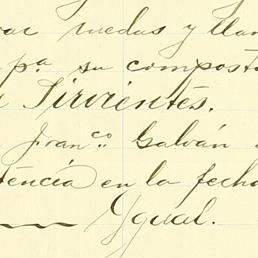 ar ruedas y llan
pª su compost
Sirvientes.
Franco. Galván
tencia en la fecha
Ygual.